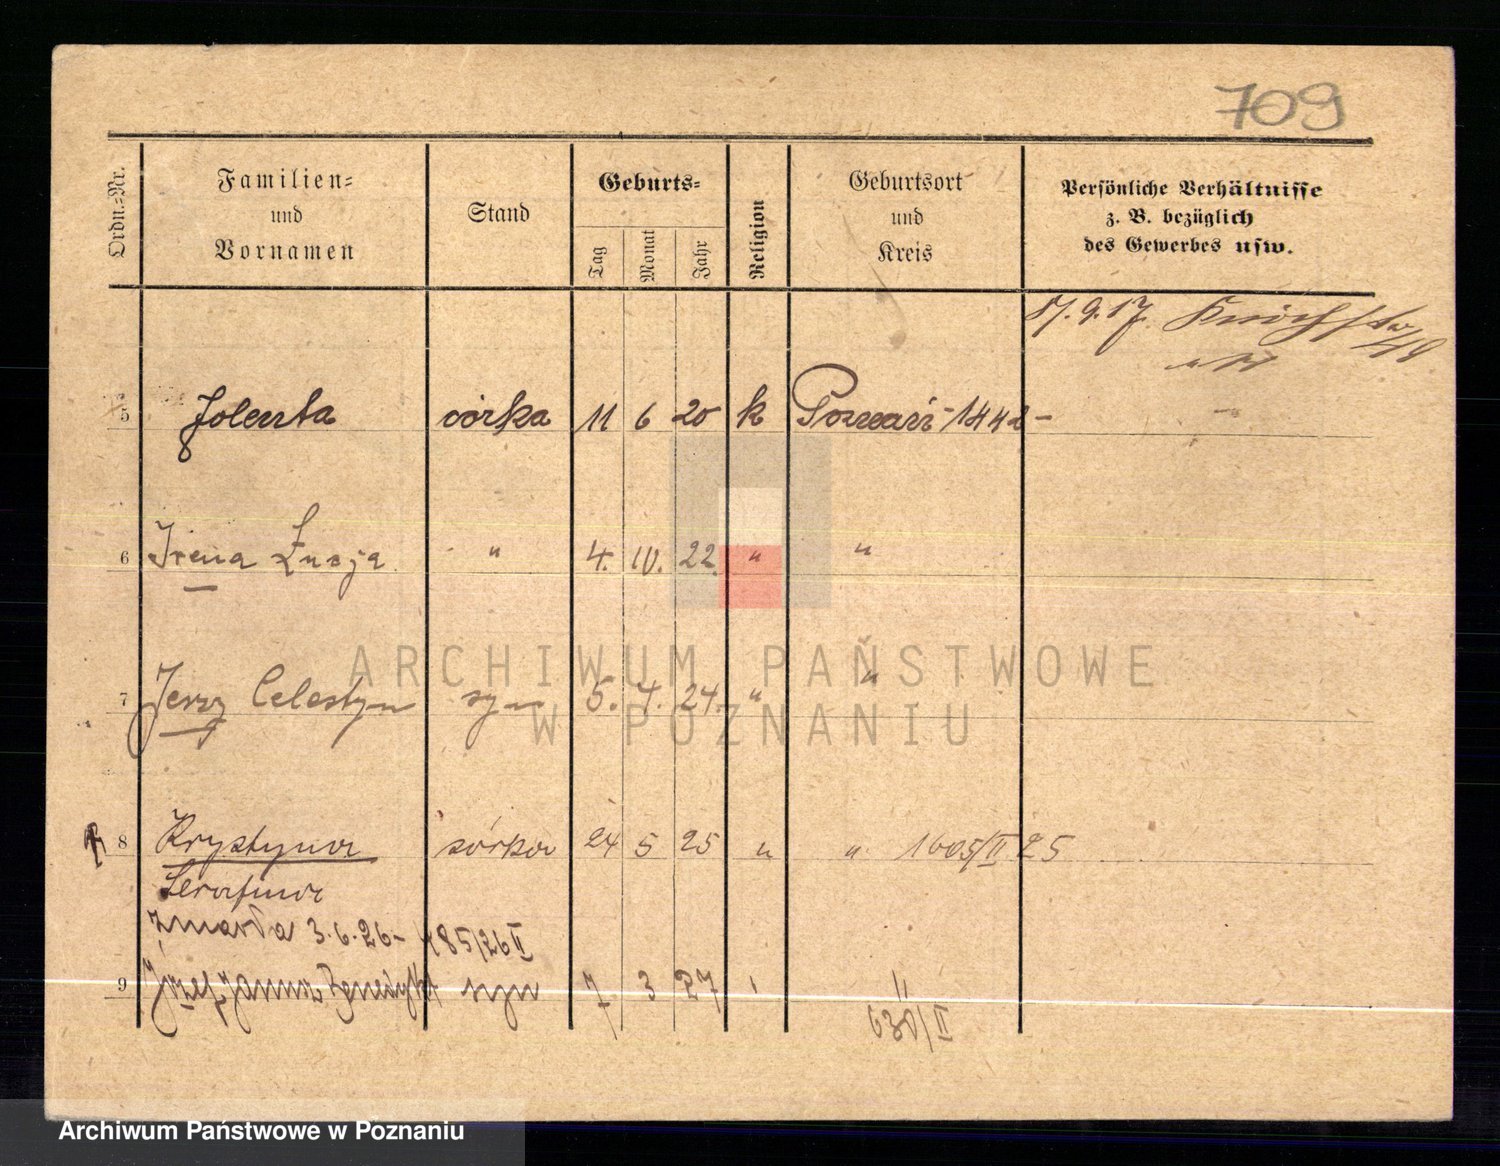 709
Ordn.-Nr.
Familien-
und
Vornamen
Stand
Geburts-
Tag
Monat
Jahr
Religion
Geburtsort
und
Kreis
Persönliche Verhältnisse
z. B. bezüglich
des Gewerbes usw.
17. 9. 17.
5 Jolenta córka 11 6 20 k Poznań - 1442 -
6 Irena Łucja " 4. IV. 22. " "
7 Jerzy Celestyn syn 5. 4. 24. " "
8 Krystyna córka 24 5 25 " " 1605/II 25
Serafina
zmarła 3.6.26 - 485/26 II
9 Józef Janusz Benedykt syn 7 3 27 " "
630/II
ARCHIWUM PAŃSTWOWE
W POZNANIU
Archiwum Państwowe w Poznaniu